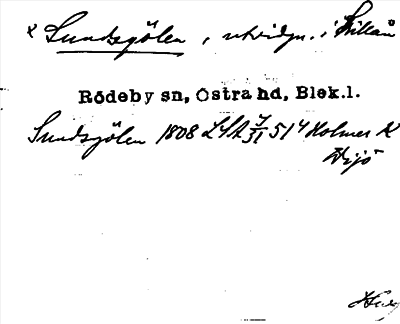 x Sundsgölen, utvidgn. i Lillån
Rödeby sn, Östra hd, Blek.l.
Sundsgölen 1808 LSA 7/31 514 Holmer N